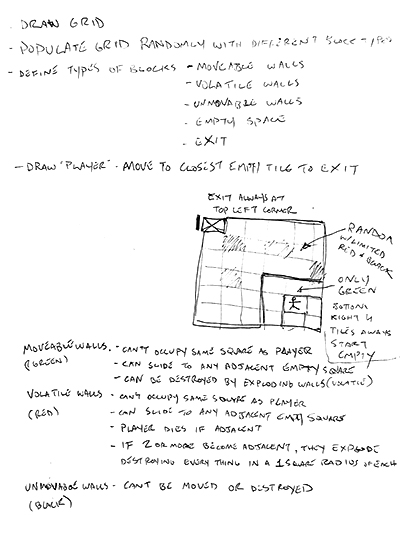 . DRAW GRID
- POPULATE GRID RANDOMLY WITH DIFFERENT BLOCK TYPES
- DEFINE TYPES OF BLOCKS - MOVEABLE WALLS
- VOLATILE WALLS
- UNMOVABLE WALLS
- EMPTY SPACE
- EXIT
- DRAW "PLAYER" - MOVE TO CLOSEST EMPTY TILE TO EXIT
EXIT ALWAYS AT
TOP LEFT CORNER
RANDOM
W/LIMITED
RED & BLACK
ONLY
GREEN
BOTTOM
RIGHT 4
TILES ALWAYS
START
EMPTY
MOVEABLE WALLS. - CAN'T OCCUPY SAME SQUARE AS PLAYER
(GREEN) - CAN SLIDE TO ANY ADJACENT EMPTY SQUARE
- CAN BE DESTROYED BY EXPLODING WALLS (VOLATILE)
VOLATILE WALLS - CAN'T OCCUPY SAME SQUARE AS PLAYER
(RED) - CAN SLIDE TO ANY ADJACENT EMPTY SQUARE
- PLAYER DIES IF ADJACENT
- IF 2 OR MORE BECOME ADJACENT, THEY EXPLODE
DESTROYING EVERYTHING IN A 1 SQUARE RADIUS OF EACH
UNMOVABLE WALLS - CANT BE MOVED OR DESTROYED
(BLACK)